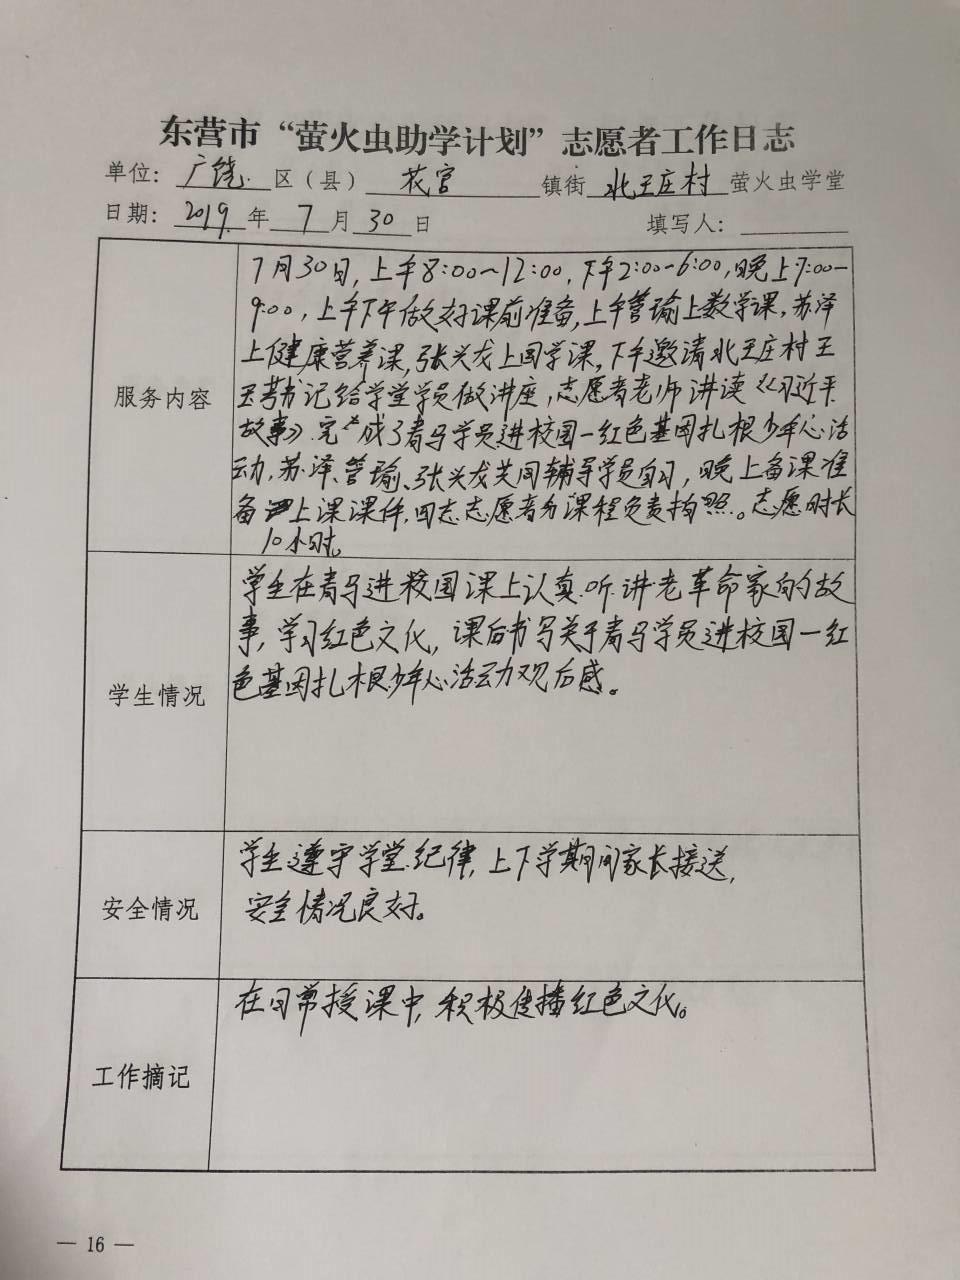 东营市“萤火虫助学计划”志愿者工作日志
单位：广饶区（县）花官镇街北王庄村萤火虫学堂
日期：2019年7月30日 填写人：
服务内容
7月30日，上午8:00～12:00，下午2:00-6:00，晚上7:00-
9:00，上午下午做好课前准备，上午菅瑜上数学课，苏泽
上健康营养课，张兴龙上国学课，下午邀请北王庄村王
书记给学堂学员做讲座，志愿者老师讲读《习近平
故事》完成了青马学员进校园一红色基因扎根少年心活
动，苏泽、菅瑜、张兴龙共同辅导学员自习，晚上备课准
备上课课件，同志志愿者为课程负责拍照。志愿时长
10小时。
学生情况
学生在青马进校园课上认真听讲老革命家的故
事，学习红色文化，课后书写关于青马学员进校园一红
色基因扎根少年心活动观后感。
安全情况
学生遵守学堂纪律，上下学期间家长接送，
安全情况良好。
工作摘记
在日常授课中，积极传播红色文化。
— 16 —